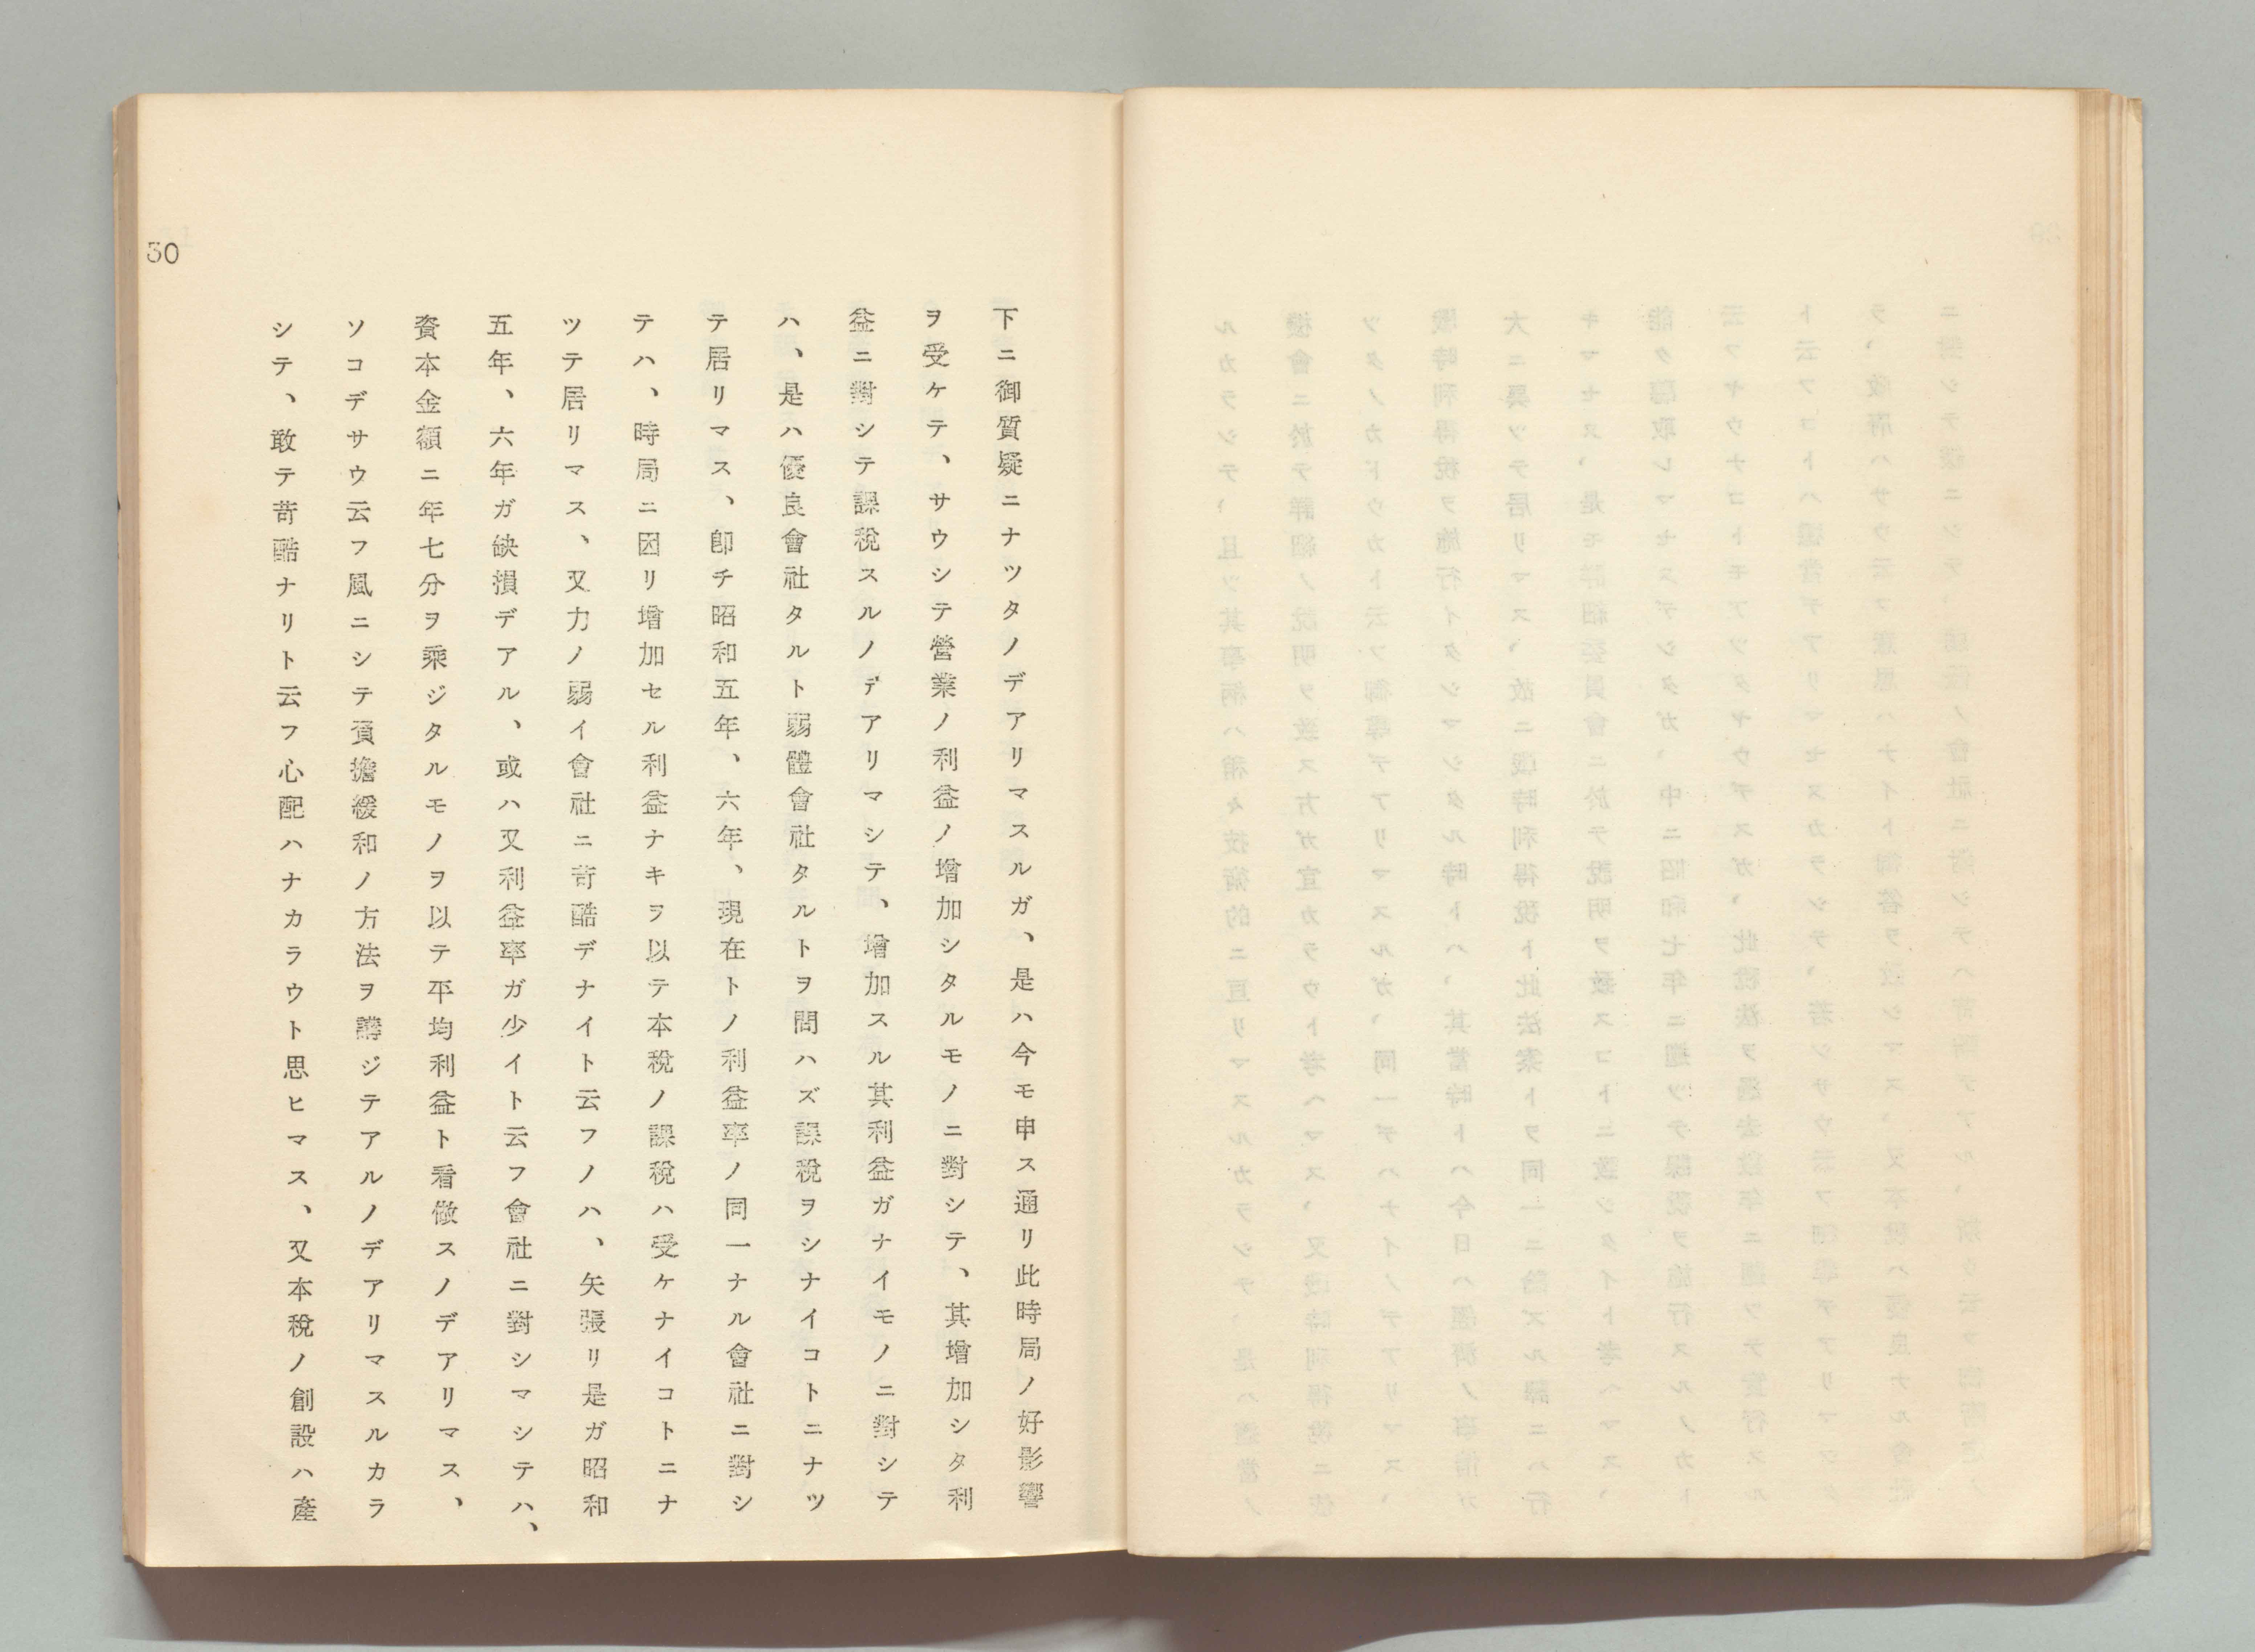 30
下ニ御質疑ニナツタノデアリマスルガ、是ハ今モ申ス通リ此時局ノ好影響
ヲ受ケテ、サウシテ營業ノ利益ノ增加シタルモノニ對シテ、其增加シタ利
益ニ對シテ課稅スルノデアリマシテ、增加スル其利益ガナイモノニ對シテ
ハ、是ハ優良會社タルト弱體會社タルトヲ問ハズ課稅ヲシナイコトニナツ
テ居リマス、卽チ昭和五年、六年、現在トノ利益率ノ同一ナル會社ニ對シ
テハ、時局ニ因リ增加セル利益ナキヲ以テ本稅ノ課稅ハ受ケナイコトニナ
ツテ居リマス、又力ノ弱イ會社ニ苛酷デナイト云フノハ、矢張リ是ガ昭和
五年、六年ガ缺損デアル、或ハ又利益率ガ少イト云フ會社ニ對シマシテハ、
資本金額ニ年七分ヲ乘ジタルモノヲ以テ平均利益ト看做スノデアリマス、
ソコデサウ云フ風ニシテ負擔緩和ノ方法ヲ講ジテアルノデアリマスルカラ
シテ、敢テ苛酷ナリト云フ心配ハナカラウト思ヒマス、又本稅ノ創設ハ產